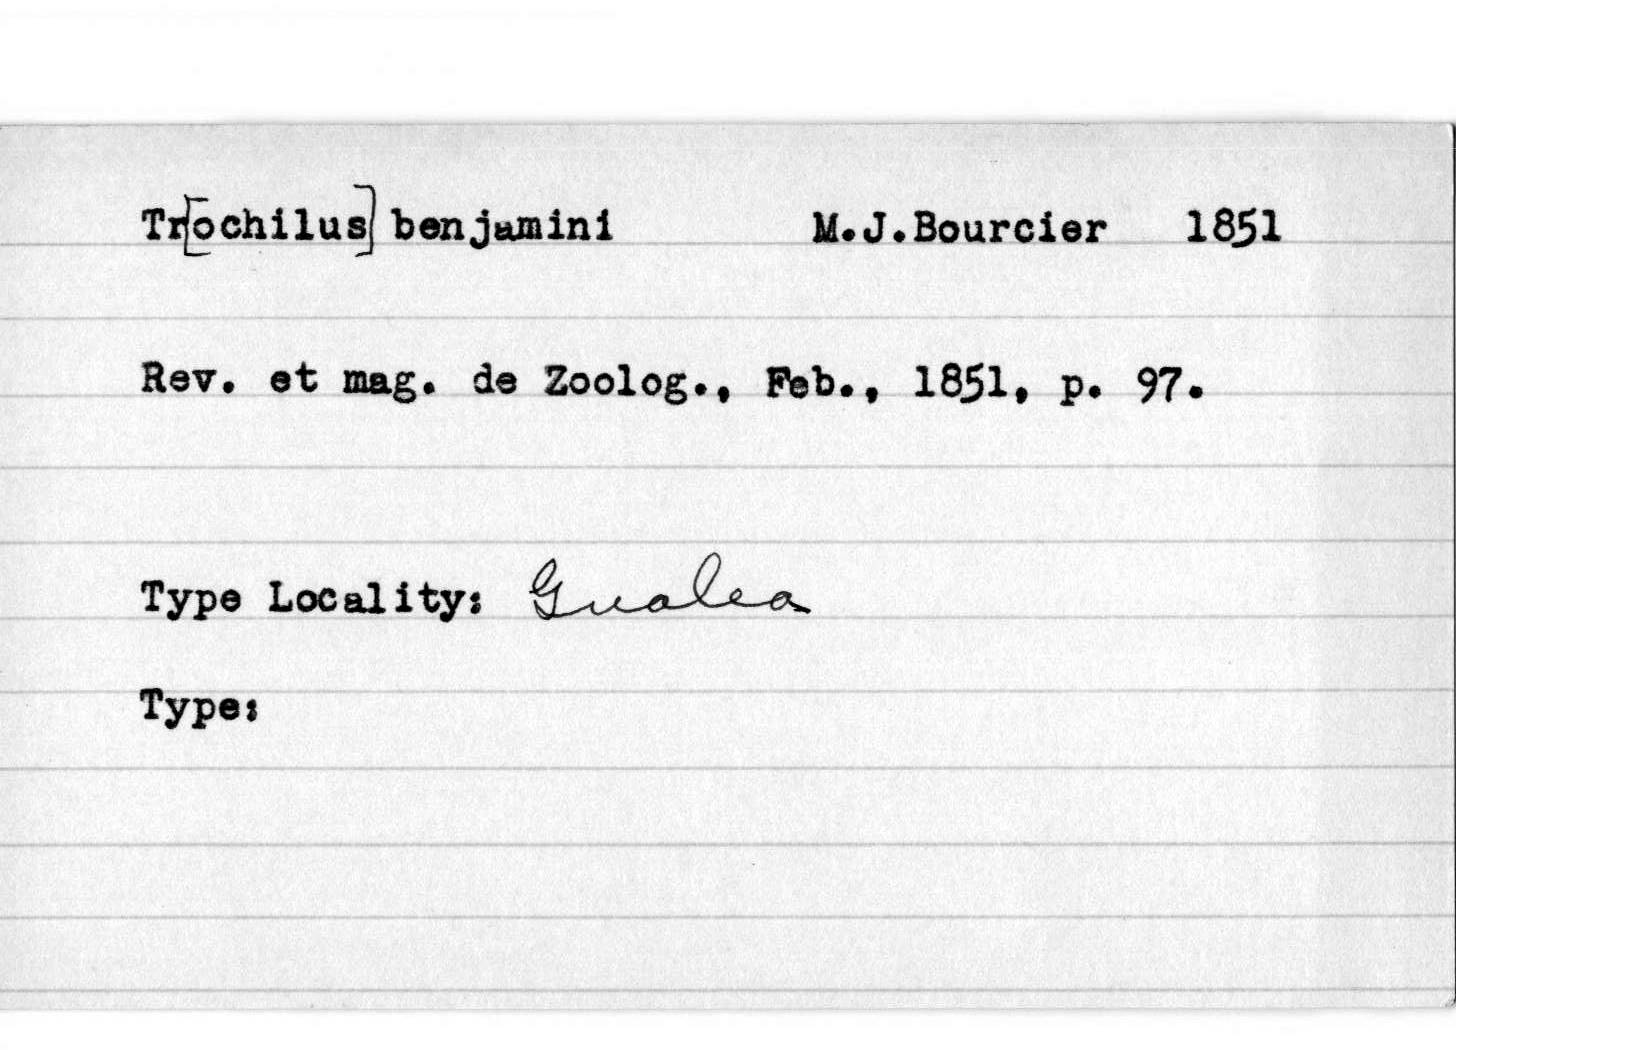 Tr[ochilus] benjamini M.J.Bourcier 1851
Rev. et mag. de Zoolog., Feb., 1851, p. 97.
Type Locality: Gualea
Type: